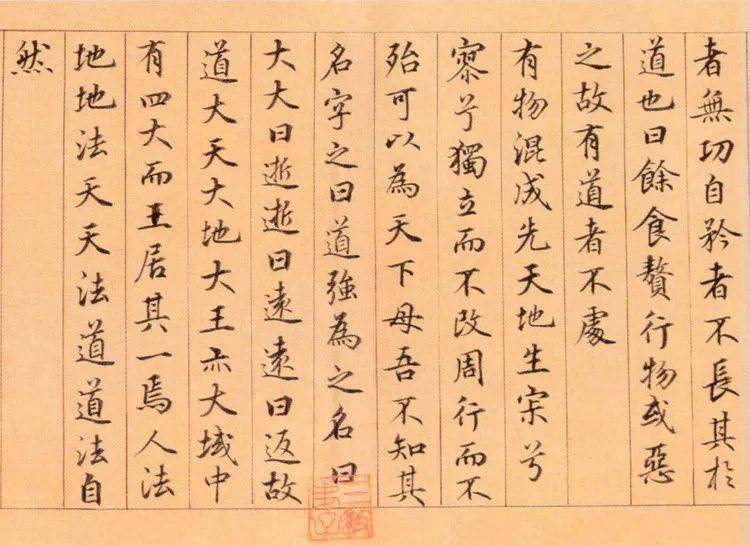 者無功自矜者不長其於
道也曰餘食贅行物或惡
之故有道者不處
有物混成先天地生宗兮
寥兮獨立而不改周行而不
殆可以為天下母吾不知其
名字之曰道強為之名曰
大大曰逝逝曰遠遠曰返故
道大天大地大王亦大域中
有四大而王居其一焉人法
地地法天天法道道法自
然